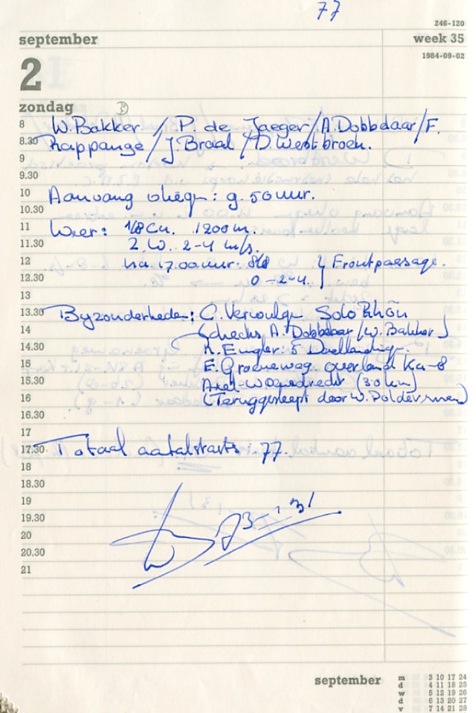 77
246-120
september week 35
1984-09-02
2
zondag
8 W. Bakker / P. de Jaeger / A. Dobbelaar / F.
8.30 Rappange / J. Braal / D. Westbroek.
9
9.30
10 Aanvang vliegn: 9.50 uur.
10.30
11 Weer: 1/8 Cu. 1200 m.
11.30 Z.W. 2-4 m/s.
12 na 17.00 uur: 8/8 } Frontpassage.
12.30 0-2-4.
13
13.30 Byzonderheden: C. Vercoulyn Solo Rhön
14 (checks A. Dobbelaar / W. Bakker)
14.30 A. Engler: 5
15 E. Groeneweg overland Ka-8
15.30 Axel-Woensdrecht (30 km)
16 (Teruggesleept door W. Polderman)
16.30
17
17.30 Totaal aantal starts: 77.
18
18.30
19
19.30
20
20.30
21
september
m 3 10 17 24
d 4 11 18 25
w 5 12 19 26
d 6 13 20 27
v 7 14 21 28